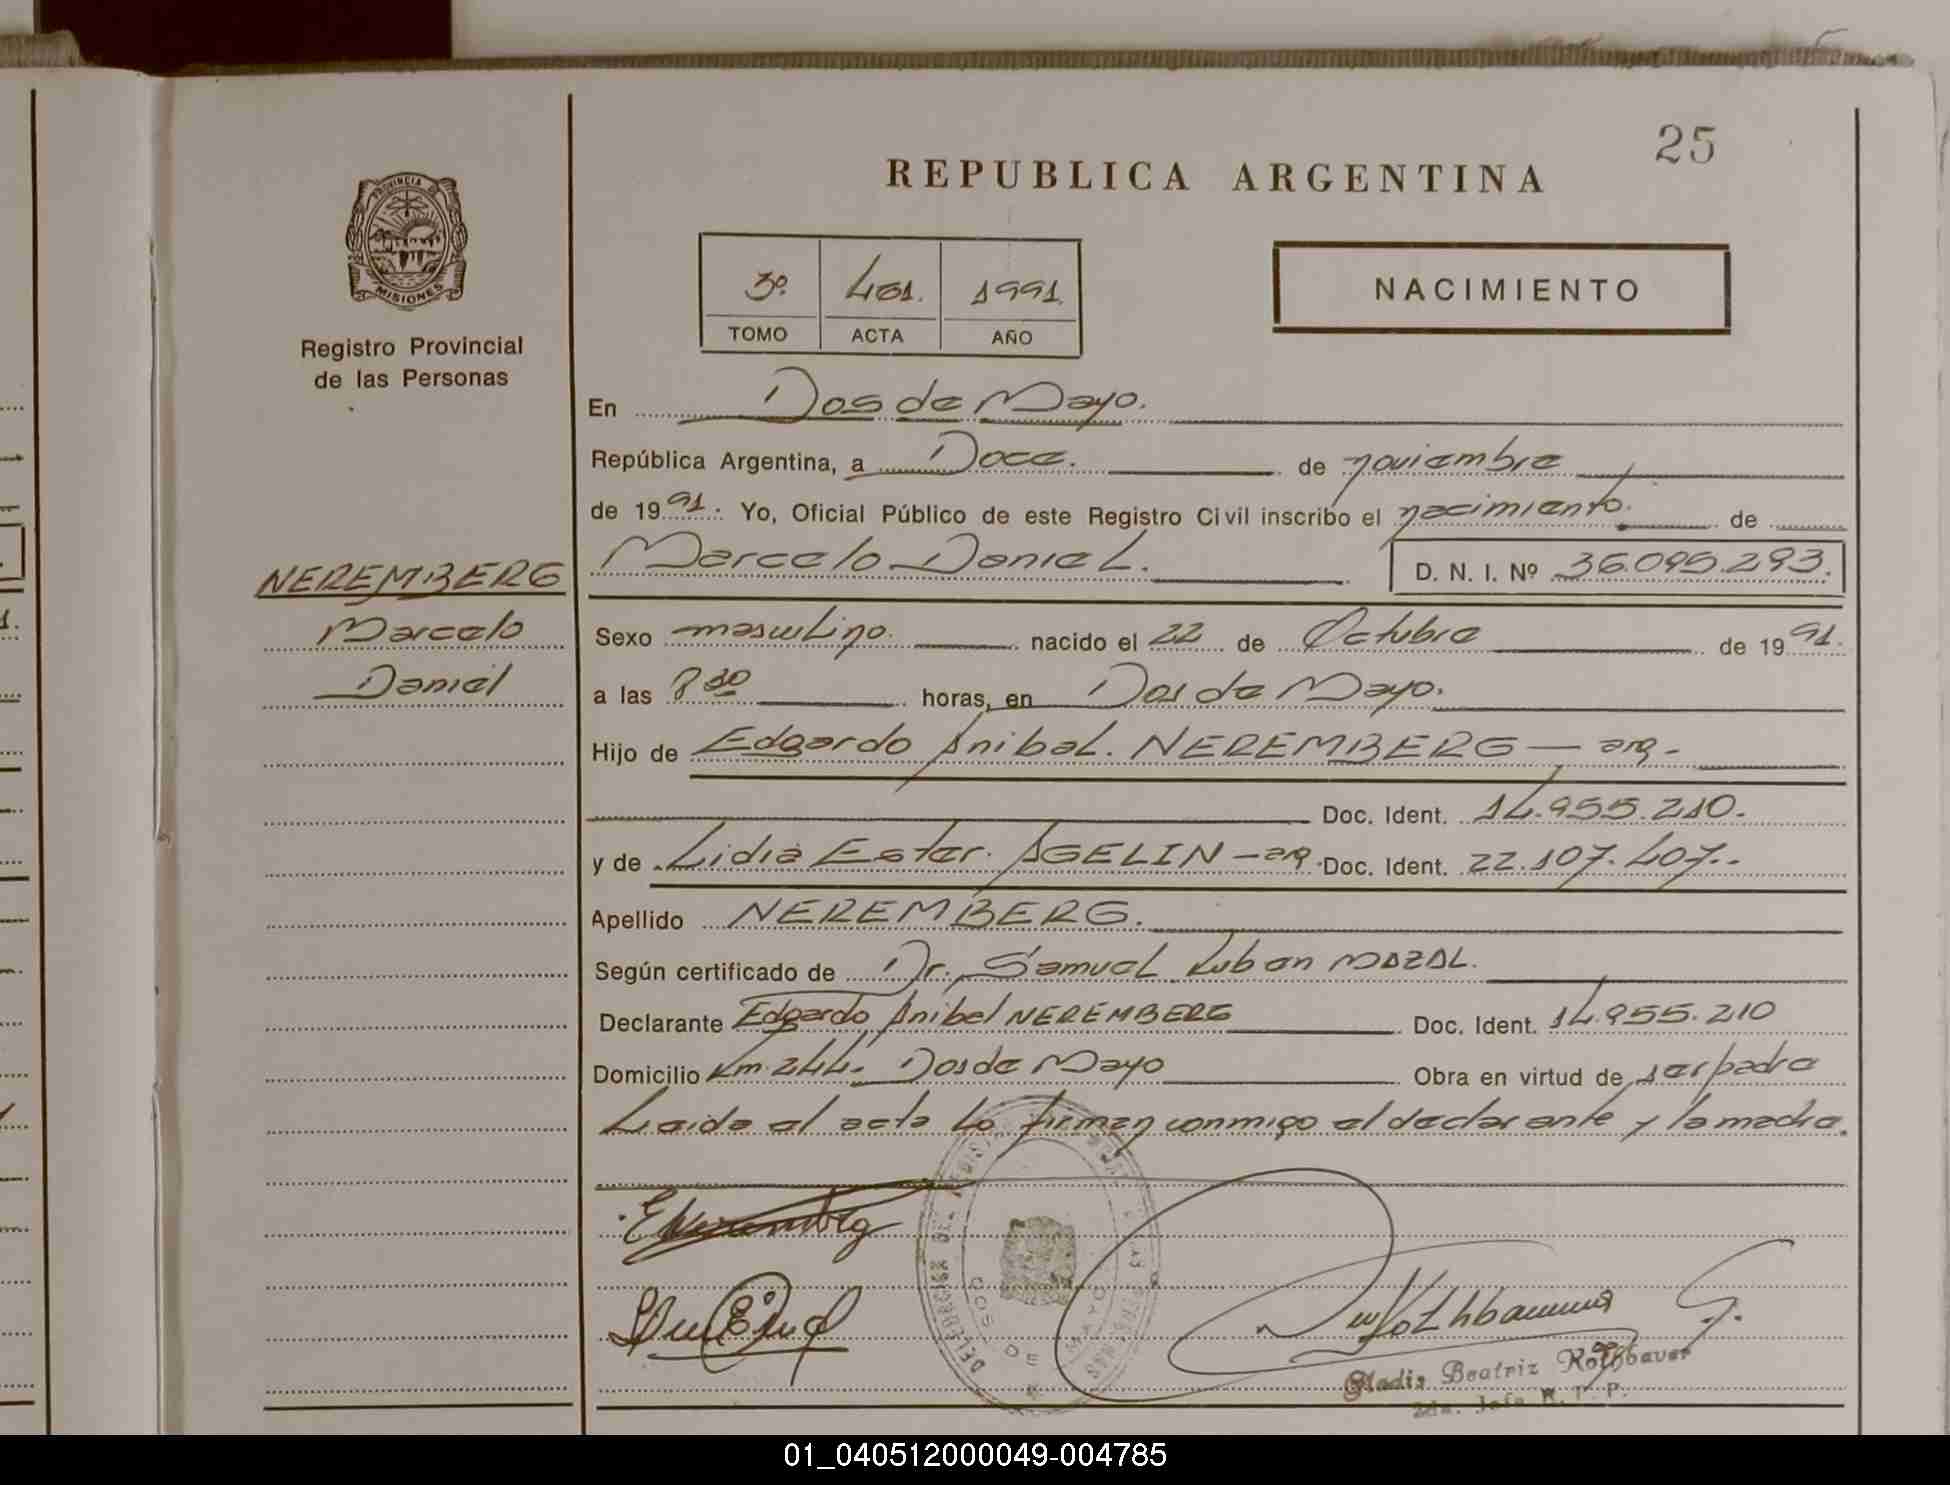 25
REPUBLICA ARGENTINA
PROVINCIA DE
MISIONES
Registro Provincial
de las Personas
3º. 401. 1991.
TOMO ACTA AÑO
NACIMIENTO
En Dos de Mayo.
República Argentina, a Doce. de noviembre
de 1991. Yo, Oficial Público de este Registro Civil inscribo el nacimiento. de
NEREMBERG
Marcelo
Daniel
Marcelo Daniel. D. N. I. Nº 36.095.293.
Sexo masculino. nacido el 22 de Octubre de 1991.
a las 8 30 horas, en Dos de Mayo.
Hijo de Edgardo Anibal. NEREMBERG — arg-
Doc. Ident. 14.955.210.
y de Lidia Ester. AGELIN - arg. Doc. Ident. 22.107.407.-
Apellido NEREMBERG.
Según certificado de Dr. Samuel Ruban MAZAL.
Declarante Edgardo Anibal NEREMBERG Doc. Ident. 14.955.210
Domicilio Km. 244. Dos de Mayo Obra en virtud de ser padre
Leida el acta la firman conmigo el declarante y la madre.
DOS DE MAYO
Gladis Beatriz Rothbauer
2da. Jefe R. P.
01_040512000049-004785